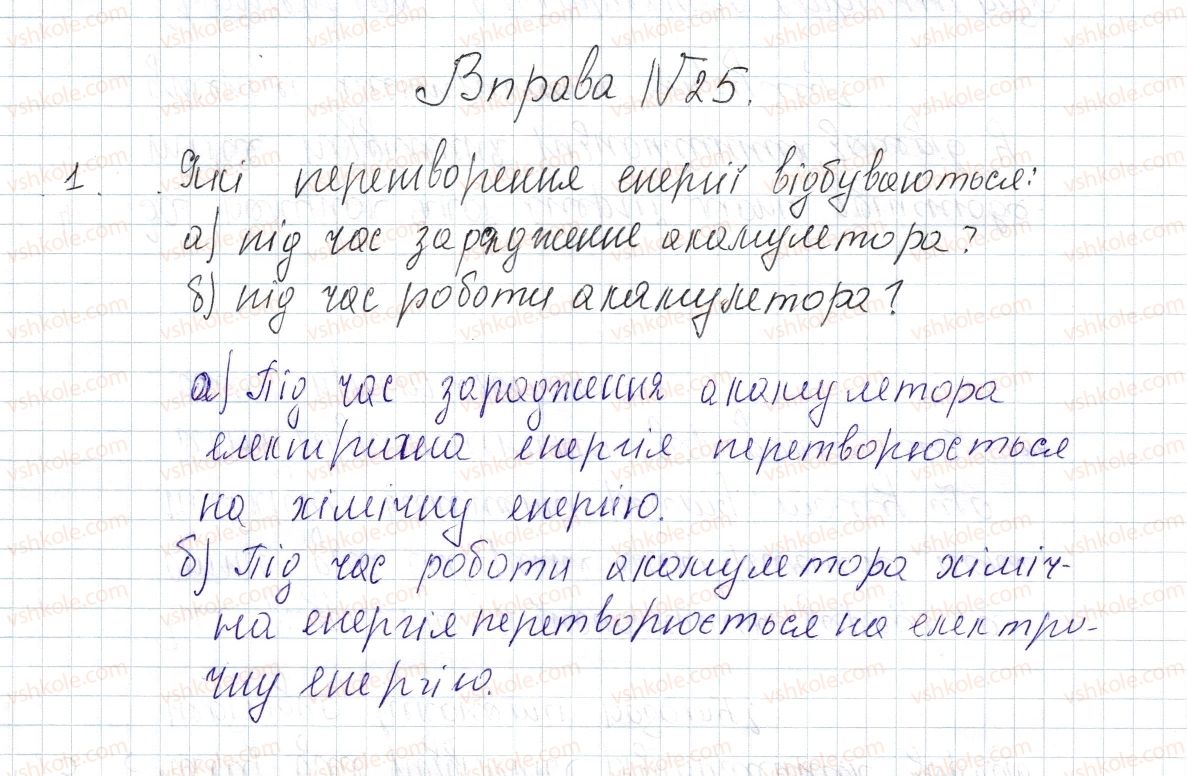 Вправа №25.
1. Які перетворення енергії відбуваються:
а) під час зарядження акамулетора?
б) під час роботи акамулетора?
а) Під час зарядження акамулетора
електрична енергія перетворюється
на хімічну енергію.
б) Під час роботи акамулетора хіміч-
на енергія перетворюється на електри-
чну енергію.